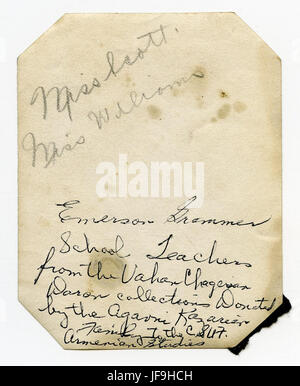 Miss Scott.
Miss Williams
Emerson Grammer
School Teachers
from the Vahan Chagerian
Daron collections Donated
by the Agavni Kazarian
Family To the CSUF.
Armenian Studies
alamy
Image ID: JF9HCH
www.alamy.com